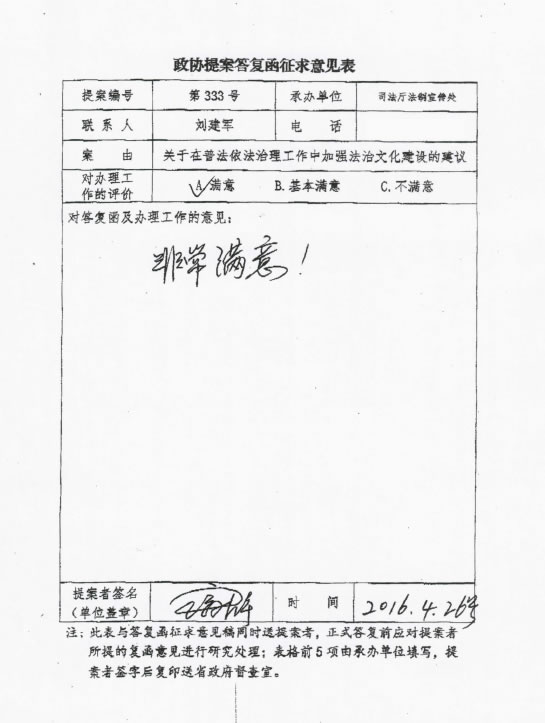 政协提案答复函征求意见表
提案编号 第 333 号 承办单位 司法厅法制宣传处
联系人 刘建军 电话
案由 关于在普法依法治理工作中加强法治文化建设的建议
对办理工作的评价 A.满意 B.基本满意 C.不满意
对答复函及办理工作的意见：
非常满意！
提案者签名
（单位盖章） 时间 2016.4.26号
注：此表与答复函征求意见稿同时送提案者，正式答复前应对提案者
所提的复函意见进行研究处理；表格前5项由承办单位填写，提
案者签字后复印送省政府督查室。